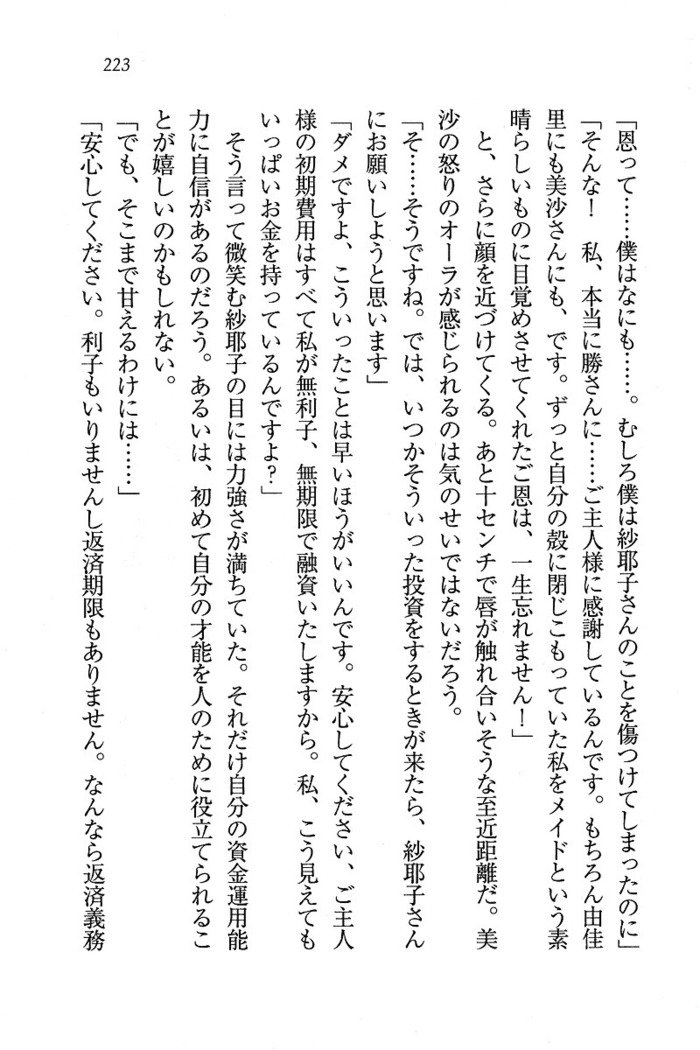 223
「恩って……僕はなにも……。むしろ僕は紗耶子さんのことを傷つけてしまったのに」
「そんな！　私、本当に勝さんに……ご主人様に感謝しているんです。もちろん由佳
里にも美沙さんにも、です。ずっと自分の殻に閉じこもっていた私をメイドという素
晴らしいものに目覚めさせてくれたご恩は、一生忘れません！」
　と、さらに顔を近づけてくる。あと十センチで唇が触れ合いそうな至近距離だ。美
沙の怒りのオーラが感じられるのは気のせいではないだろう。
「そ……そうですね。では、いつかそういった投資をするときが来たら、紗耶子さん
にお願いしようと思います」
「ダメですよ、こういったことは早いほうがいいんです。安心してください、ご主人
様の初期費用はすべて私が無利子、無期限で融資いたしますから。私、こう見えても
いっぱいお金を持っているんですよ？」
　そう言って微笑む紗耶子の目には力強さが満ちていた。それだけ自分の資金運用能
力に自信があるのだろう。あるいは、初めて自分の才能を人のために役立てられるこ
とが嬉しいのかもしれない。
「でも、そこまで甘えるわけには……」
「安心してください。利子もいりませんし返済期限もありません。なんなら返済義務